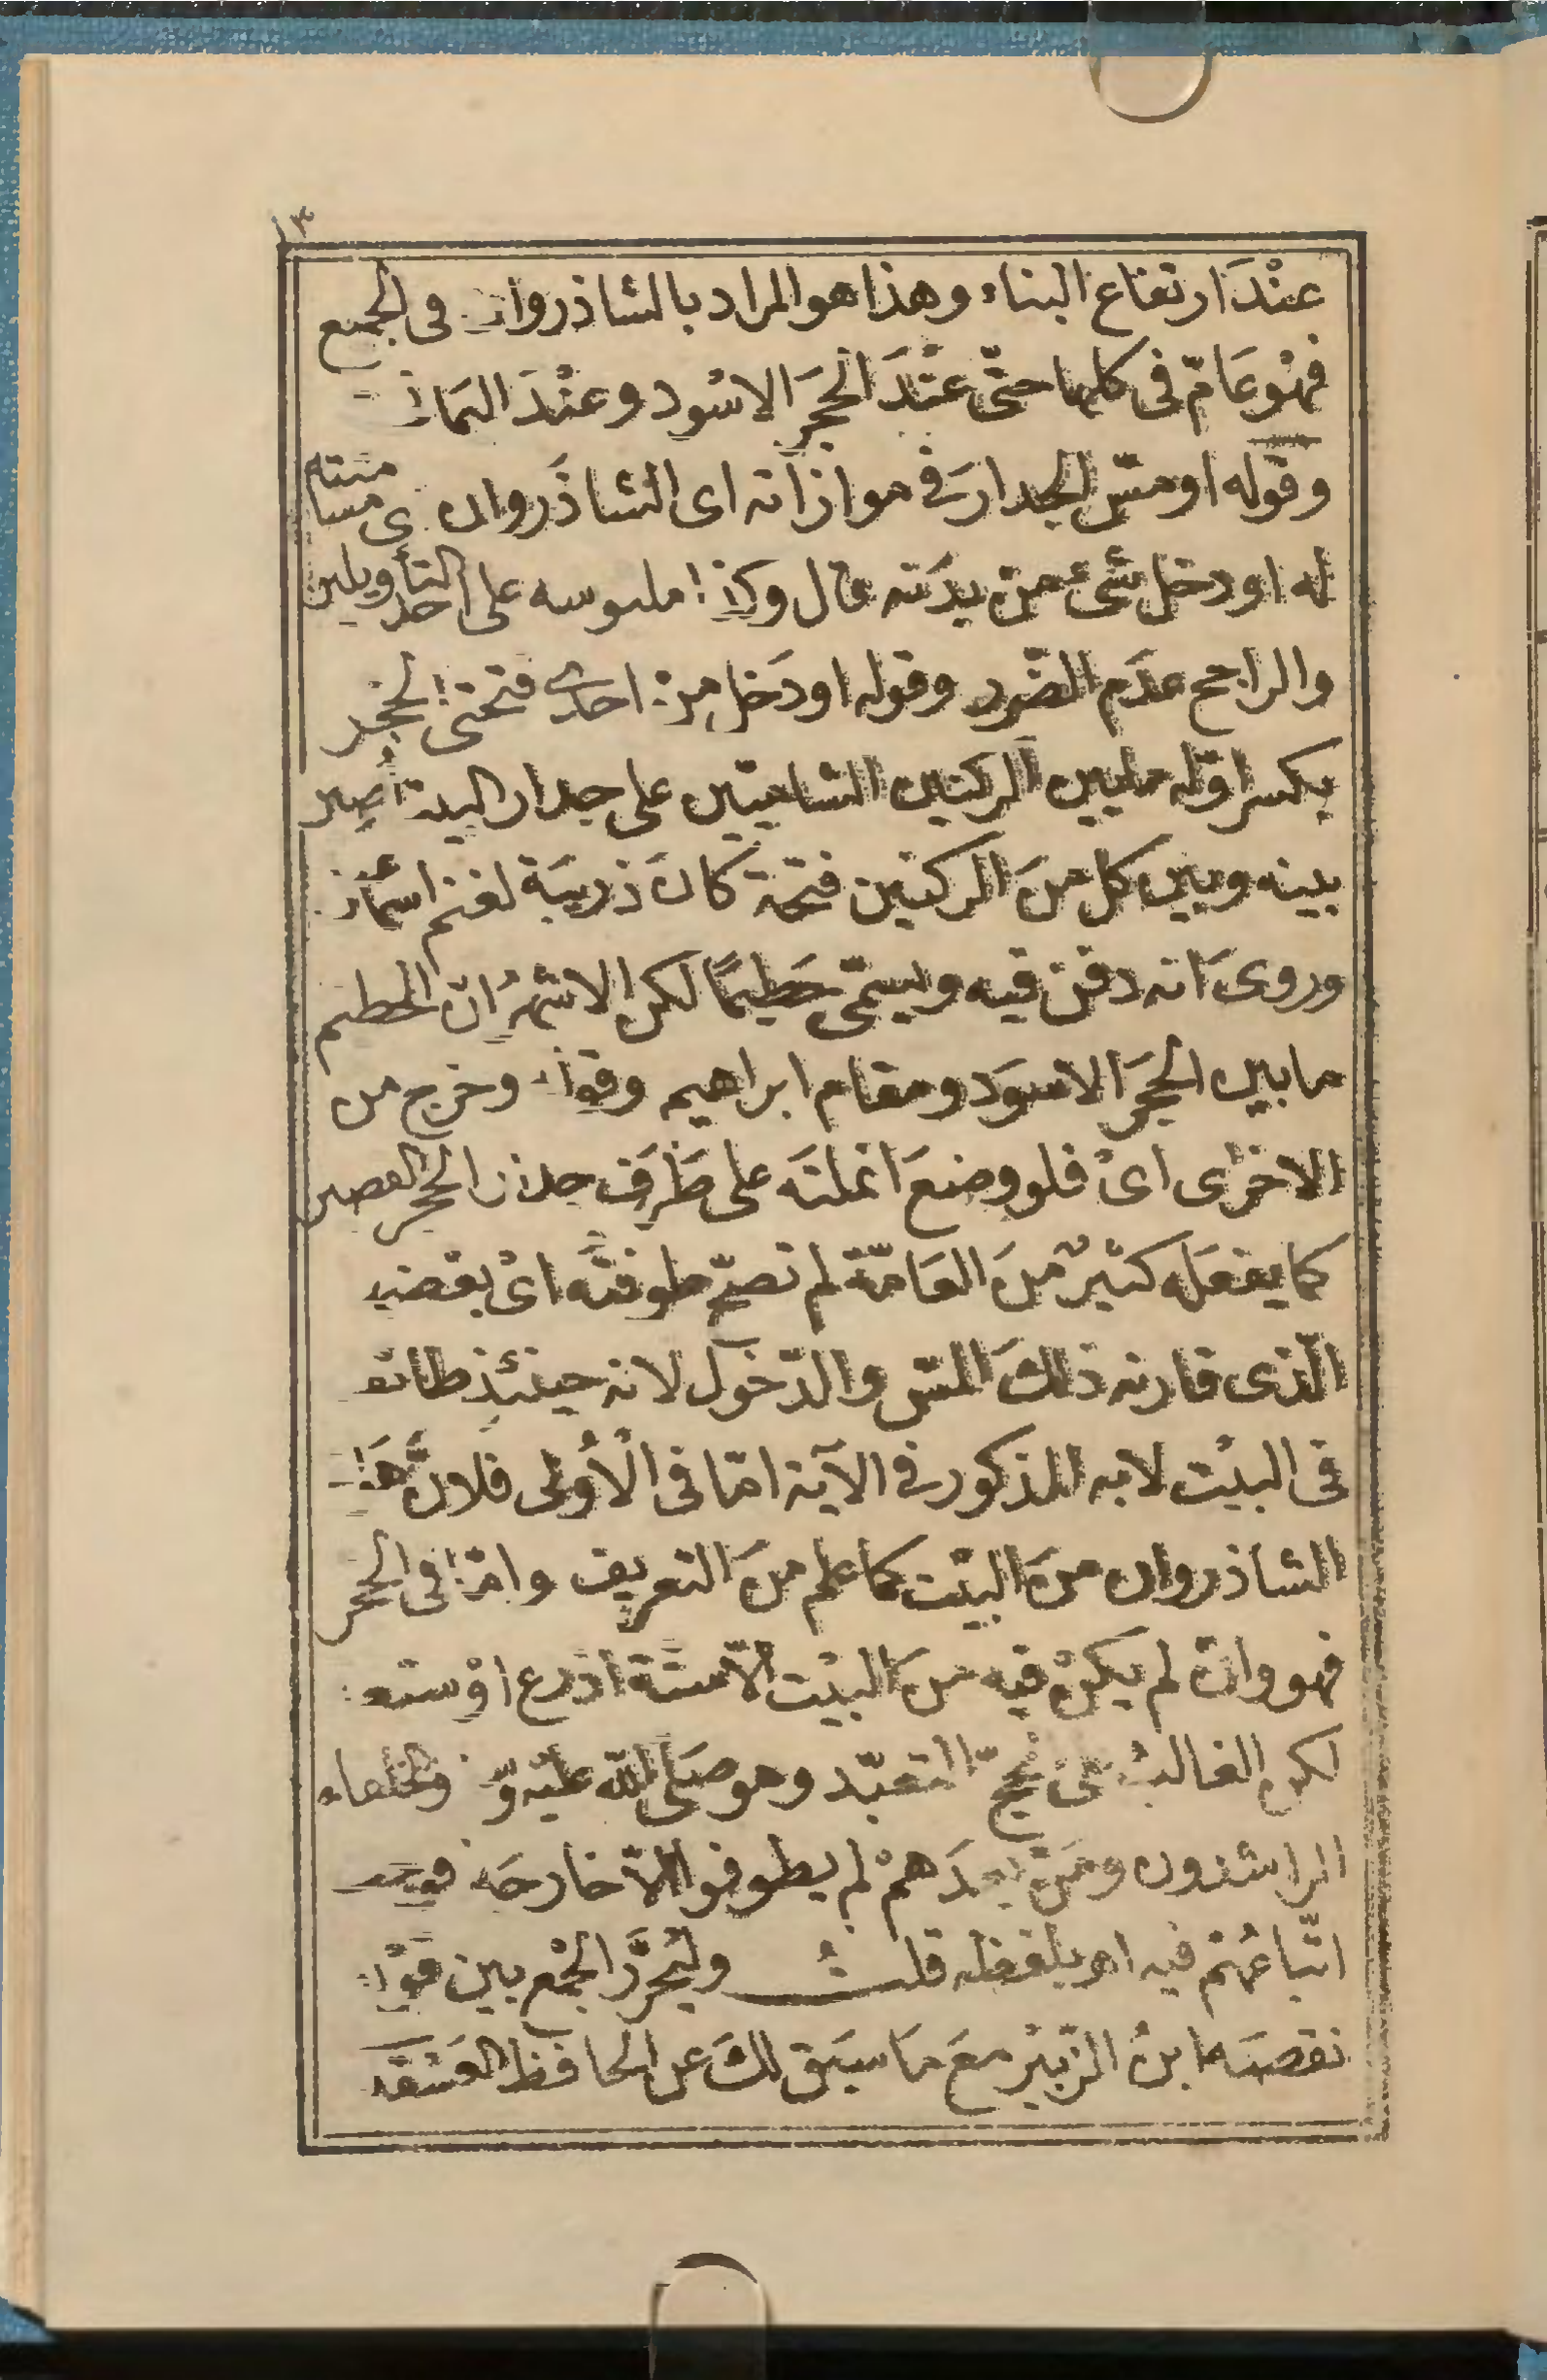 ١٣
عنْدَ ارتفاع البناء وهذا هو المراد بالشاذروان فى الجميع
فهْو عَامّ فى كلها حتّى عنْدَ الحَجَر الاسْود وعنْدَ اليمَان
وقوله او مسّ الجدارَ فى موازاته اى الشاذَروان اى مسا
له او دخل شئ من بدَنه قال وكذا ملبوسه على احد التأويلين
والراجح عدَم الضّرر وقوله او دَخل من احدى فتحتى الحجْر
بكسر اوّله ما بين الركنين الشاميّين على جدار قصير
بينه وبين كل منَ الركنين فتحة كانَ زريبَة لغنم اسمٰعيل
وروىَ انه دفن فيه ويسمّى حَطيمًا لكن الاشهرُ انّ الحطيم
ما بين الحَجَر الاسوَد ومقام ابراهيم وقوله وخرج من
الاخرٰى اىْ فلو وضعَ انملتَه على طَرَف جدار الحجْر القصير
كما يفعَله كثيْرٌ منَ العَامّة لم تصحّ طوفته اىْ بعْضه
الّذى قارنه ذلكَ المسّ والدّخول لانه حينئذٍ طائف
فى البيْت لا به المذكور فى الآية امّا فى الْاُوْلى فلانّ هَذا
الشاذروان منَ البيْت كما علم منَ التعريف وامّا فى الحجْر
فهو وانْ لم يكنْ فيه منَ البيْت الّا ستّة اذرع اوْ سبْعة
لكن الغالبُ فى الحجّ التعبّد وهو صَلى اللّه عليْه وّ والخلفاء
الراشدون ومَنْ بعدَهمْ لم يطوفوا الّا خارجَه فوجب
اتّباعُهمْ فيه اهـ بلفظه قلتُ وليُحرَّر الجمْع بين قوْله
نقصَه ابنُ الزّبيْر معَ مَا سبَق لكَ عن الحافظ العَسْقَلـ